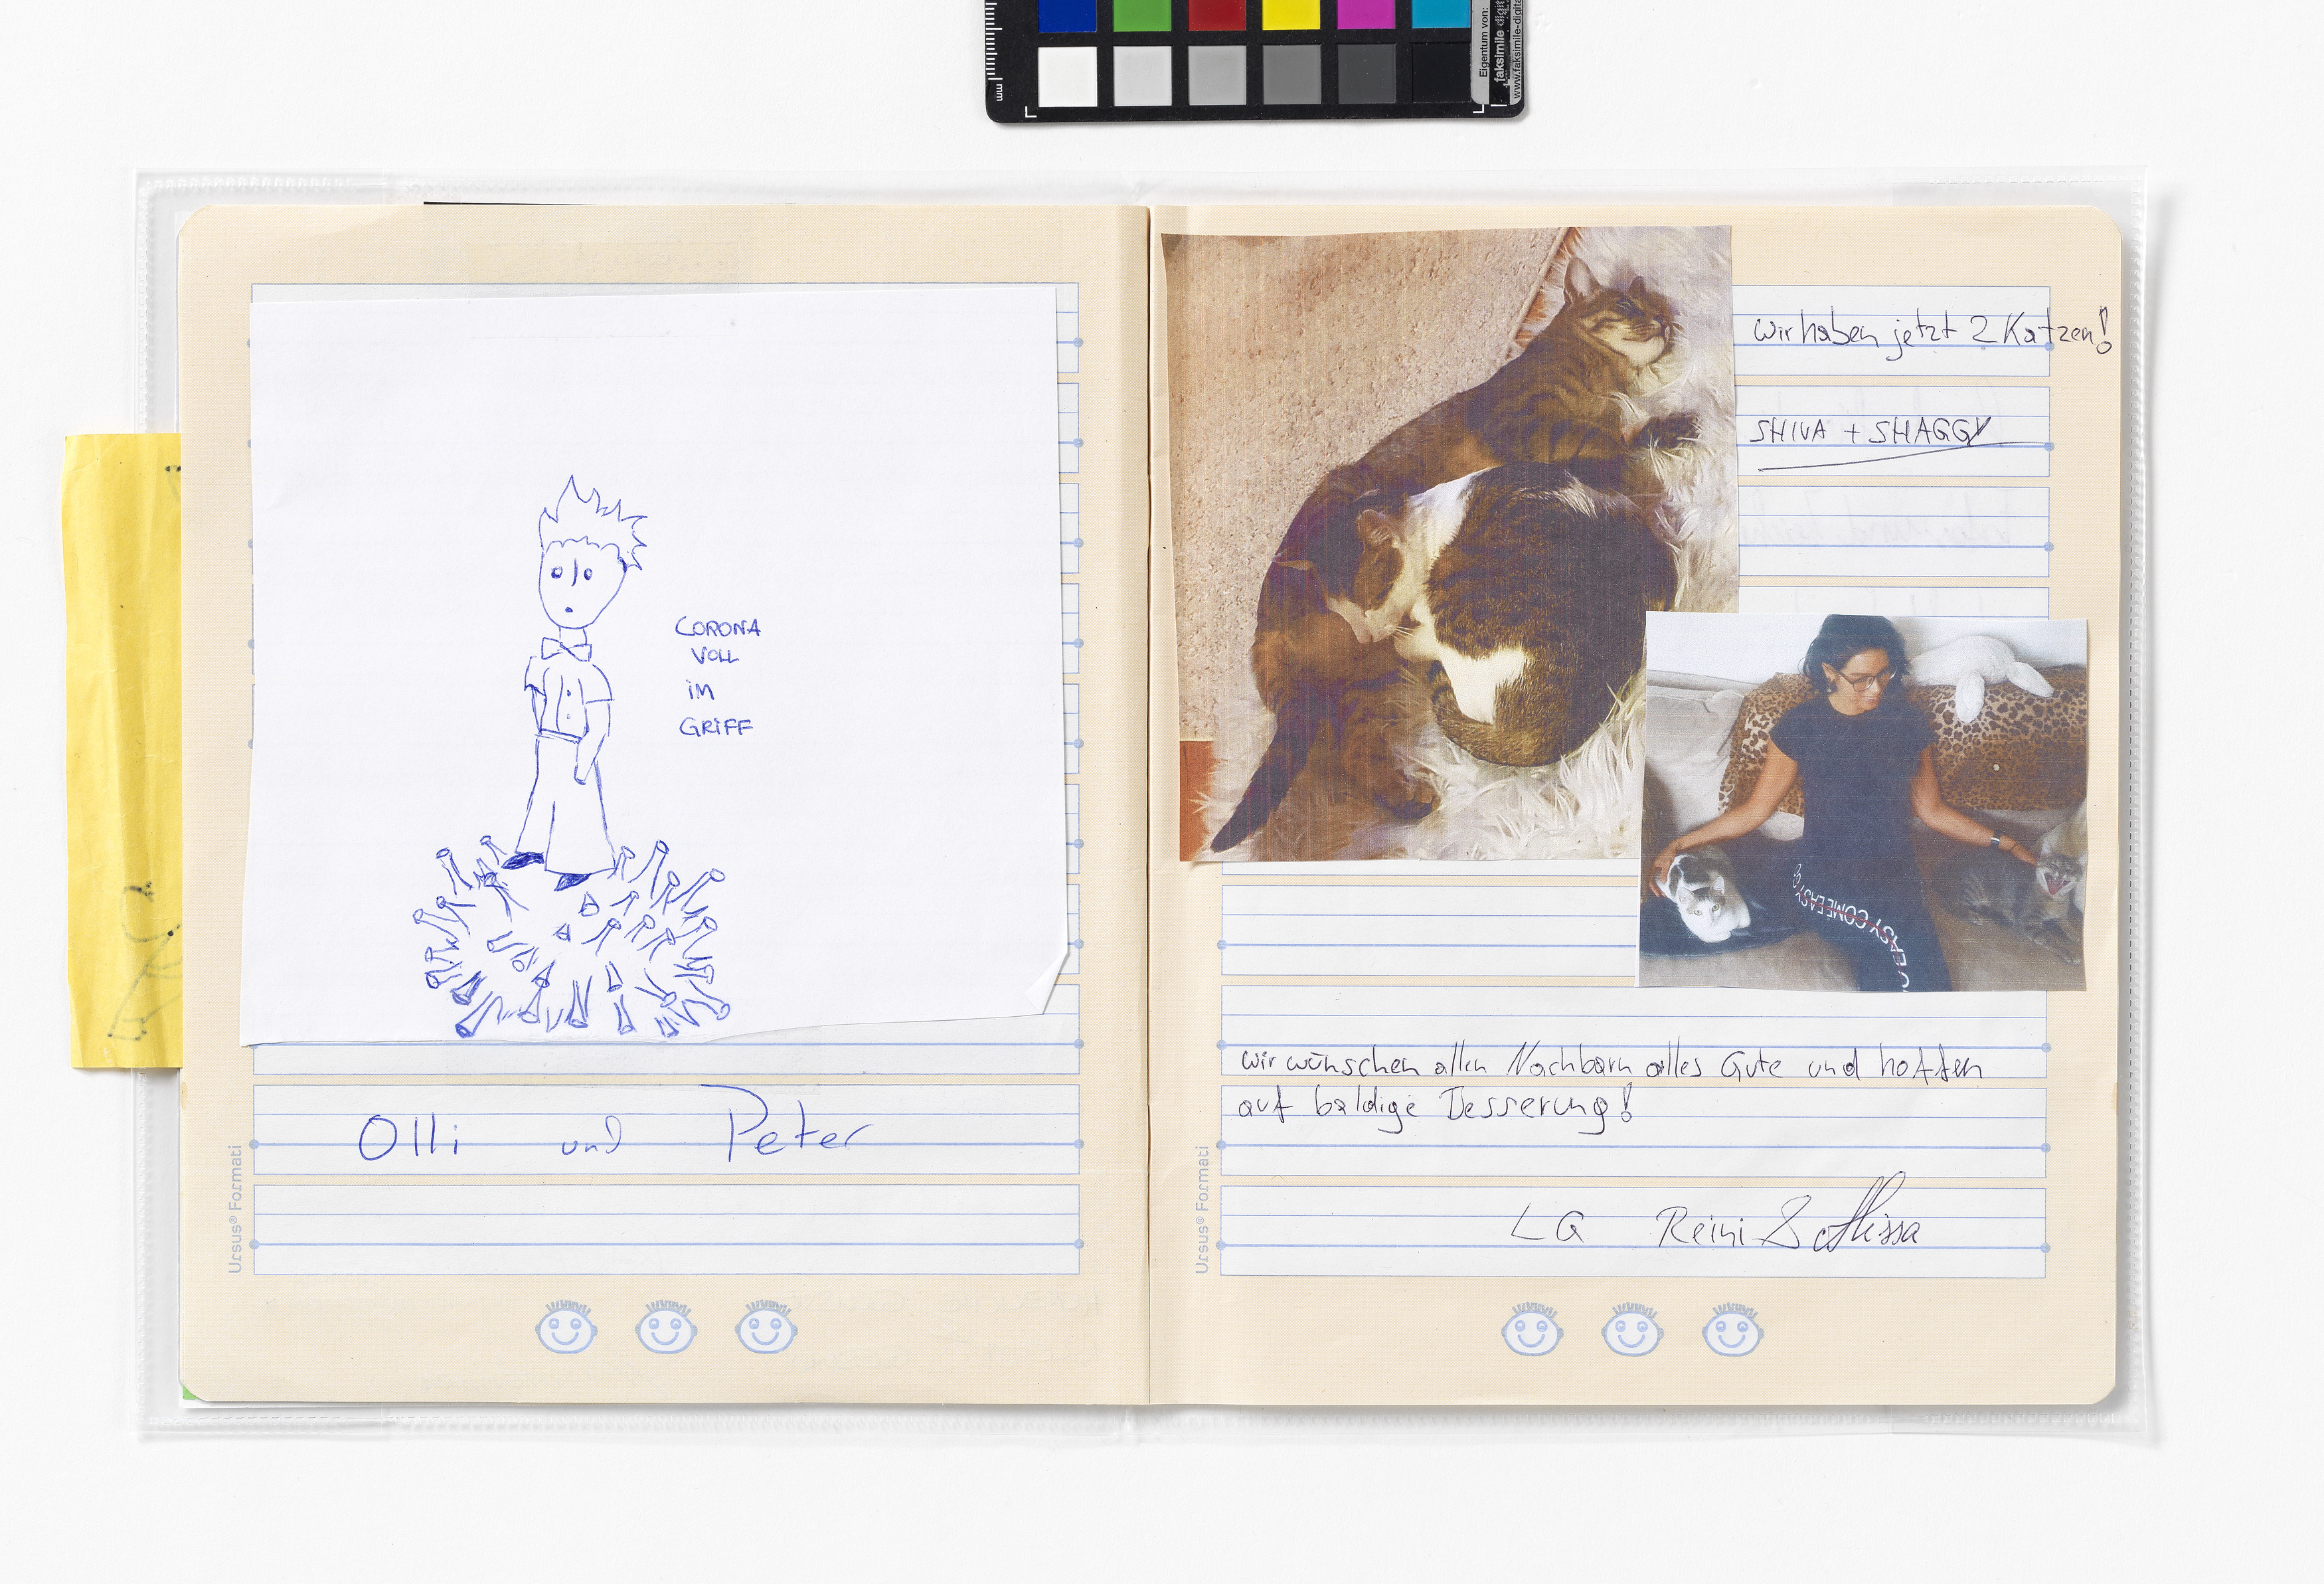 Eigentum von:
faksimile digital
www.faksimile-digita
mm
CORONA
VOLL
iM
GRiFF
Olli und Peter
Ursus® Formati
wir haben jetzt 2 Katzen!
SHIVA + SHAGGY
EASY COME EASY GO
wir wünschen allen Nachbarn alles Gute und hoffen
auf baldige Besserung!
LG Reini &
Ursus® Formati